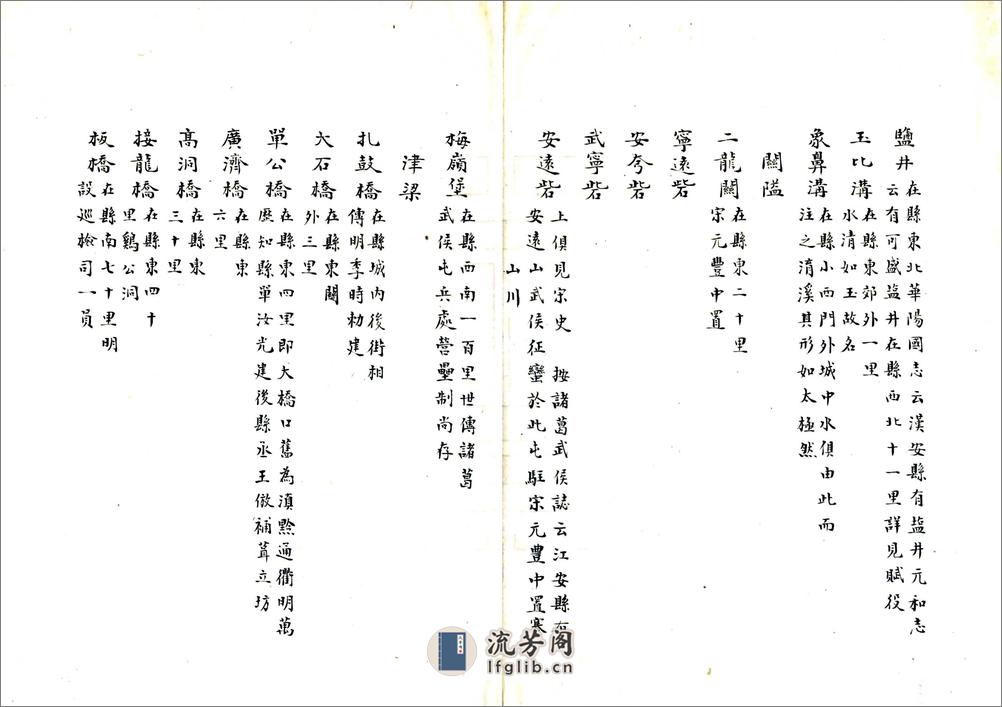 鹽井在縣東北華陽國志云漢安縣有盐井元和志
云有可盛盐井在縣西北十一里詳見賦役
玉比溝在縣東郊外一里
水清如玉故名
象鼻溝在縣小西門外城中水俱由此而
注之淯溪其形如太極然
關隘
二龍關在縣東二十里
宋元豐中置
寧遠砦
安夸砦
武寧砦
安遠砦上俱見宋史 按諸葛武侯誌云江安縣有
安遠山武侯征蠻於此屯駐宋元豐中置寨
山川
梅嶺堡在縣西南一百里世傳諸葛
武侯屯兵處營壘制尚存
津梁
扎鼓橋在縣城內後街相
傳明季時勅建
大石橋在縣東關
外三里
單公橋在縣東四里即大橋口舊為滇黔通衢明萬
歷知縣單汝光建後縣丞王儆補葺立坊
廣濟橋在縣東
六里
高洞橋在縣東
三十里
接龍橋在縣東四十
里鷄公洞
板橋在縣南七十里明
設巡檢司一員
流芳阁
lfglib.cn